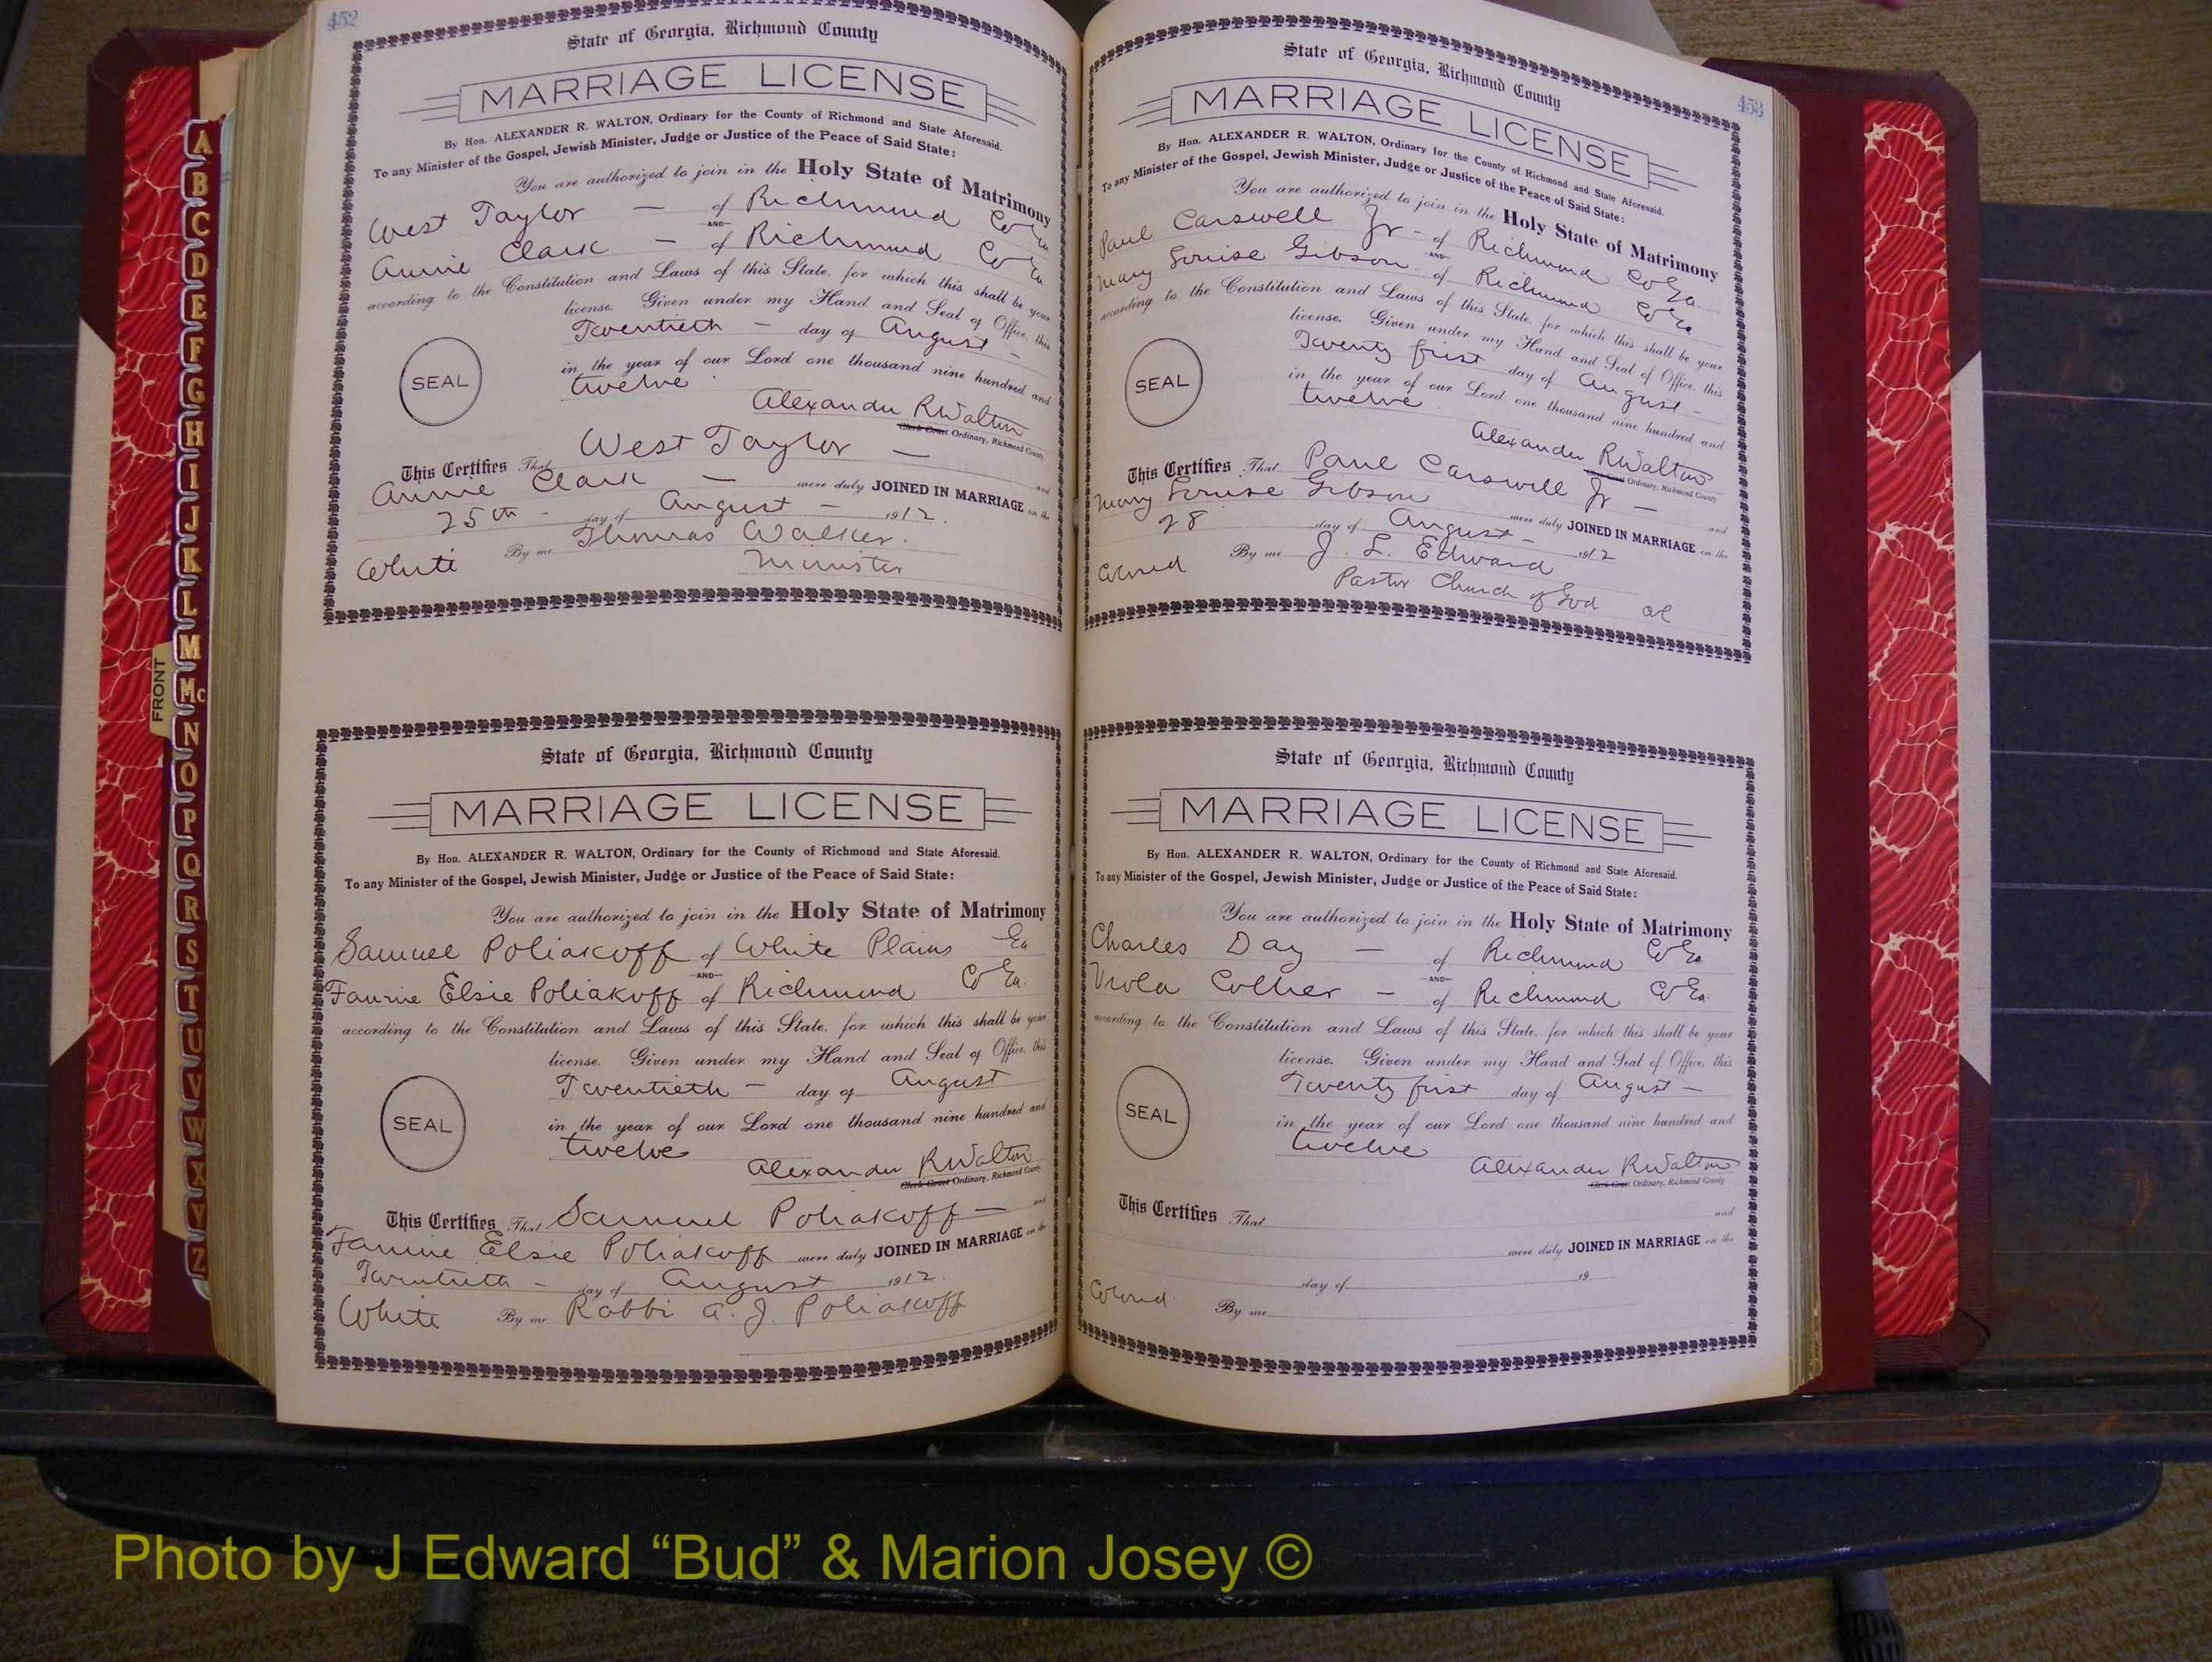 452
State of Georgia, Richmond County
MARRIAGE LICENSE
By Hon. ALEXANDER R. WALTON, Ordinary for the County of Richmond and State Aforesaid.
To any Minister of the Gospel, Jewish Minister, Judge or Justice of the Peace of Said State:
You are authorized to join in the Holy State of Matrimony
West Taylor — of Richmond Co Ga
AND
Annie Clark — of Richmond Co Ga
according to the Constitution and Laws of this State, for which this shall be your
license. Given under my Hand and Seal of Office, this
Twentieth — day of August —
in the year of our Lord one thousand nine hundred and
twelve
SEAL
Alexander R Walton
Clerk Court Ordinary, Richmond County.
This Certifies That West Taylor — and
Annie Clark — were duly JOINED IN MARRIAGE on the
25th - day of August — 1912.
White By me Thomas Walker.
Minister
State of Georgia, Richmond County
MARRIAGE LICENSE
By Hon. ALEXANDER R. WALTON, Ordinary for the County of Richmond and State Aforesaid.
To any Minister of the Gospel, Jewish Minister, Judge or Justice of the Peace of Said State:
You are authorized to join in the Holy State of Matrimony
Samuel Poliakoff of White Plains Ga
AND
Fannie Elsie Poliakoff of Richmond Co Ga.
according to the Constitution and Laws of this State, for which this shall be your
license. Given under my Hand and Seal of Office, this
Twentieth — day of August
in the year of our Lord one thousand nine hundred and
twelve
SEAL
Alexander R Walton
Clerk Court Ordinary, Richmond County.
This Certifies That Samuel Poliakoff — and
Fannie Elsie Poliakoff were duly JOINED IN MARRIAGE on the
Twentieth - day of August 1912.
White By me Rabbi A. J. Poliakoff
453
State of Georgia, Richmond County
MARRIAGE LICENSE
By Hon. ALEXANDER R. WALTON, Ordinary for the County of Richmond and State Aforesaid.
To any Minister of the Gospel, Jewish Minister, Judge or Justice of the Peace of Said State:
You are authorized to join in the Holy State of Matrimony
Paul Carswell Jr - of Richmond Co Ga
AND
Mary Louise Gibson - of Richmond Co Ga
according to the Constitution and Laws of this State, for which this shall be your
license. Given under my Hand and Seal of Office, this
Twenty first day of August -
in the year of our Lord one thousand nine hundred and
twelve
SEAL
Alexander R Walton
Court Ordinary, Richmond County
This Certifies That Paul Carswell Jr — and
Mary Louise Gibson were duly JOINED IN MARRIAGE on the
28 day of August — 1912
Colored By me J. L. Edward
Pastor Church of God
State of Georgia, Richmond County
MARRIAGE LICENSE
By Hon. ALEXANDER R. WALTON, Ordinary for the County of Richmond and State Aforesaid.
To any Minister of the Gospel, Jewish Minister, Judge or Justice of the Peace of Said State:
You are authorized to join in the Holy State of Matrimony
Charles Day — of Richmond Co Ga
AND
Viola Collier — of Richmond Co Ga.
according to the Constitution and Laws of this State, for which this shall be your
license. Given under my Hand and Seal of Office, this
Twenty first day of August —
in the year of our Lord one thousand nine hundred and
twelve
SEAL
Alexander R Walton
Clerk Court Ordinary, Richmond County.
This Certifies That and
were duly JOINED IN MARRIAGE on the
day of 19
Colored By me
FRONT
A
B
C
D
E
F
G
H
I
J
K
L
M
Mc
N
O
P
Q
R
S
T
U
V
W
X
Y
Z
Photo by J Edward “Bud” & Marion Josey ©